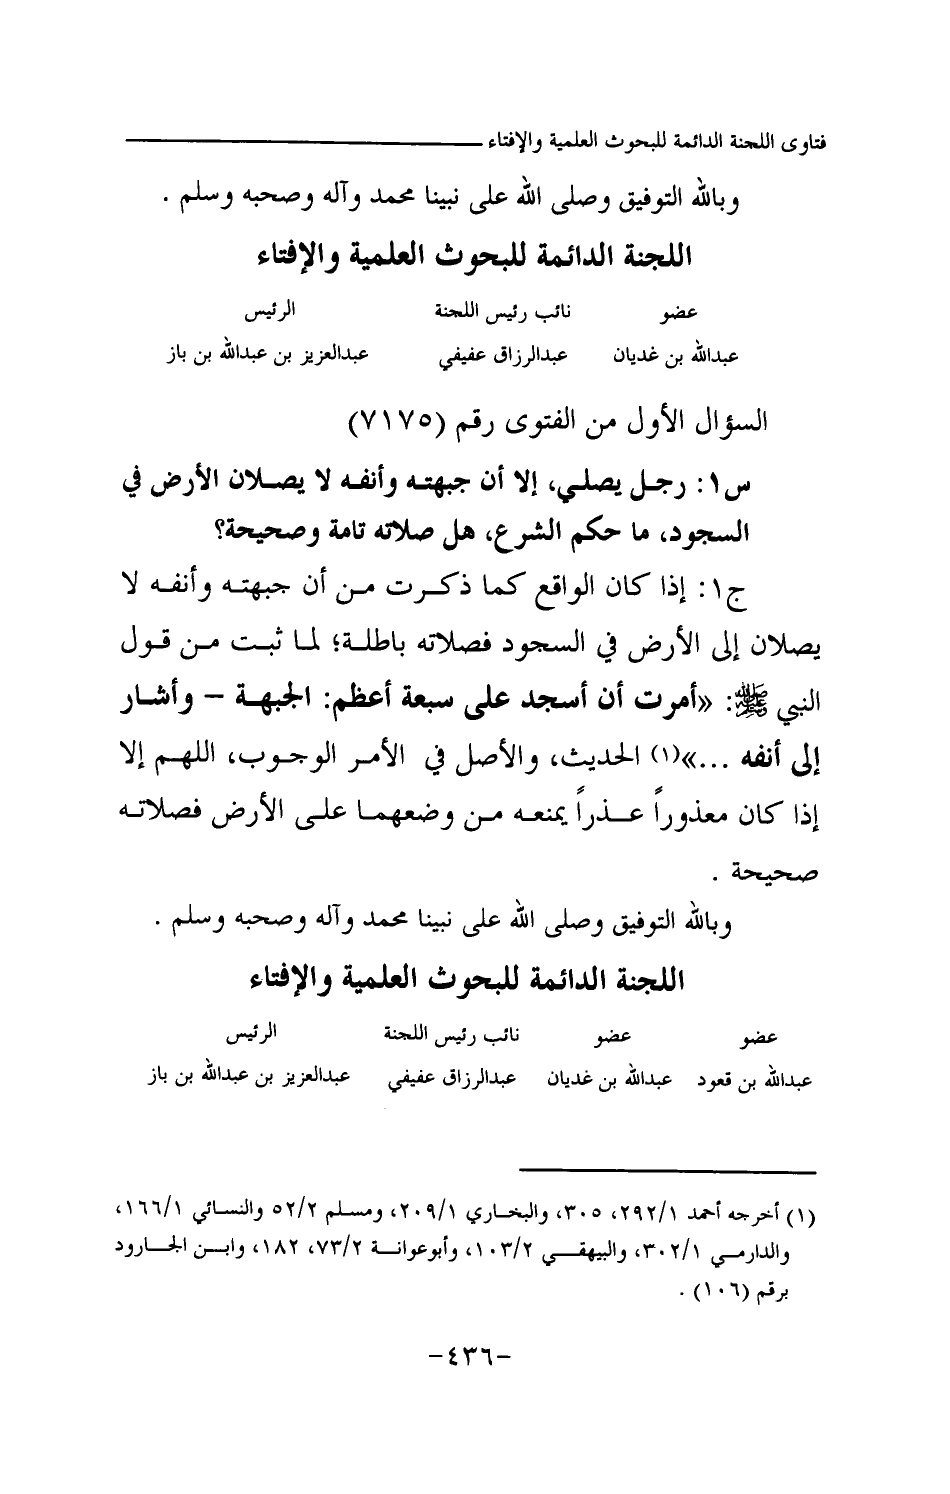 فتاوى اللجنة الدائمة للبحوث العلمية والإفتاء
وبالله التوفيق وصلى الله على نبينا محمد وآله وصحبه وسلم .
اللجنة الدائمة للبحوث العلمية والإفتاء
عضو نائب رئيس اللجنة الرئيس
عبدالله بن غديان عبدالرزاق عفيفي عبدالعزيز بن عبدالله بن باز
السؤال الأول من الفتوى رقم (٧١٧٥)
س١: رجـل يصلـي، إلا أن جبهتـه وأنفـه لا يصـلان الأرض في
السجود، ما حكم الشرع، هل صلاته تامة وصحيحة؟
ج١: إذا كان الواقع كمـا ذكـرت مـن أن جبهتـه وأنفـه لا
يصلان إلى الأرض في السجود فصلاته باطلة؛ لمـا ثبـت مـن قـول
النبي ﷺ: «أمرت أن أسجد على سبعة أعظم: الجبهـة – وأشـار
إلى أنفه ...»(١) الحديث، والأصل في الأمـر الوجـوب، اللهـم إلا
إذا كان معذوراً عـذراً يمنعـه مـن وضعهمـا علـى الأرض فصلاتـه
صحيحة .
وبالله التوفيق وصلى الله على نبينا محمد وآله وصحبه وسلم .
اللجنة الدائمة للبحوث العلمية والإفتاء
عضو عضو نائب رئيس اللجنة الرئيس
عبدالله بن قعود عبدالله بن غديان عبدالرزاق عفيفي عبدالعزيز بن عبدالله بن باز
(١) أخرجه أحمد ٢٩٢/١، ٣٠٥، والبخـاري ٢٠٩/١، ومسلـم ٥٢/٢ والنسـائي ١٦٦/١،
والدارمـي ٣٠٢/١، والبيهقـي ١٠٣/٢، وأبوعوانـة ٧٣/٢، ١٨٢، وابـن الجـارود
برقم (١٠٦) .
-٤٣٦-